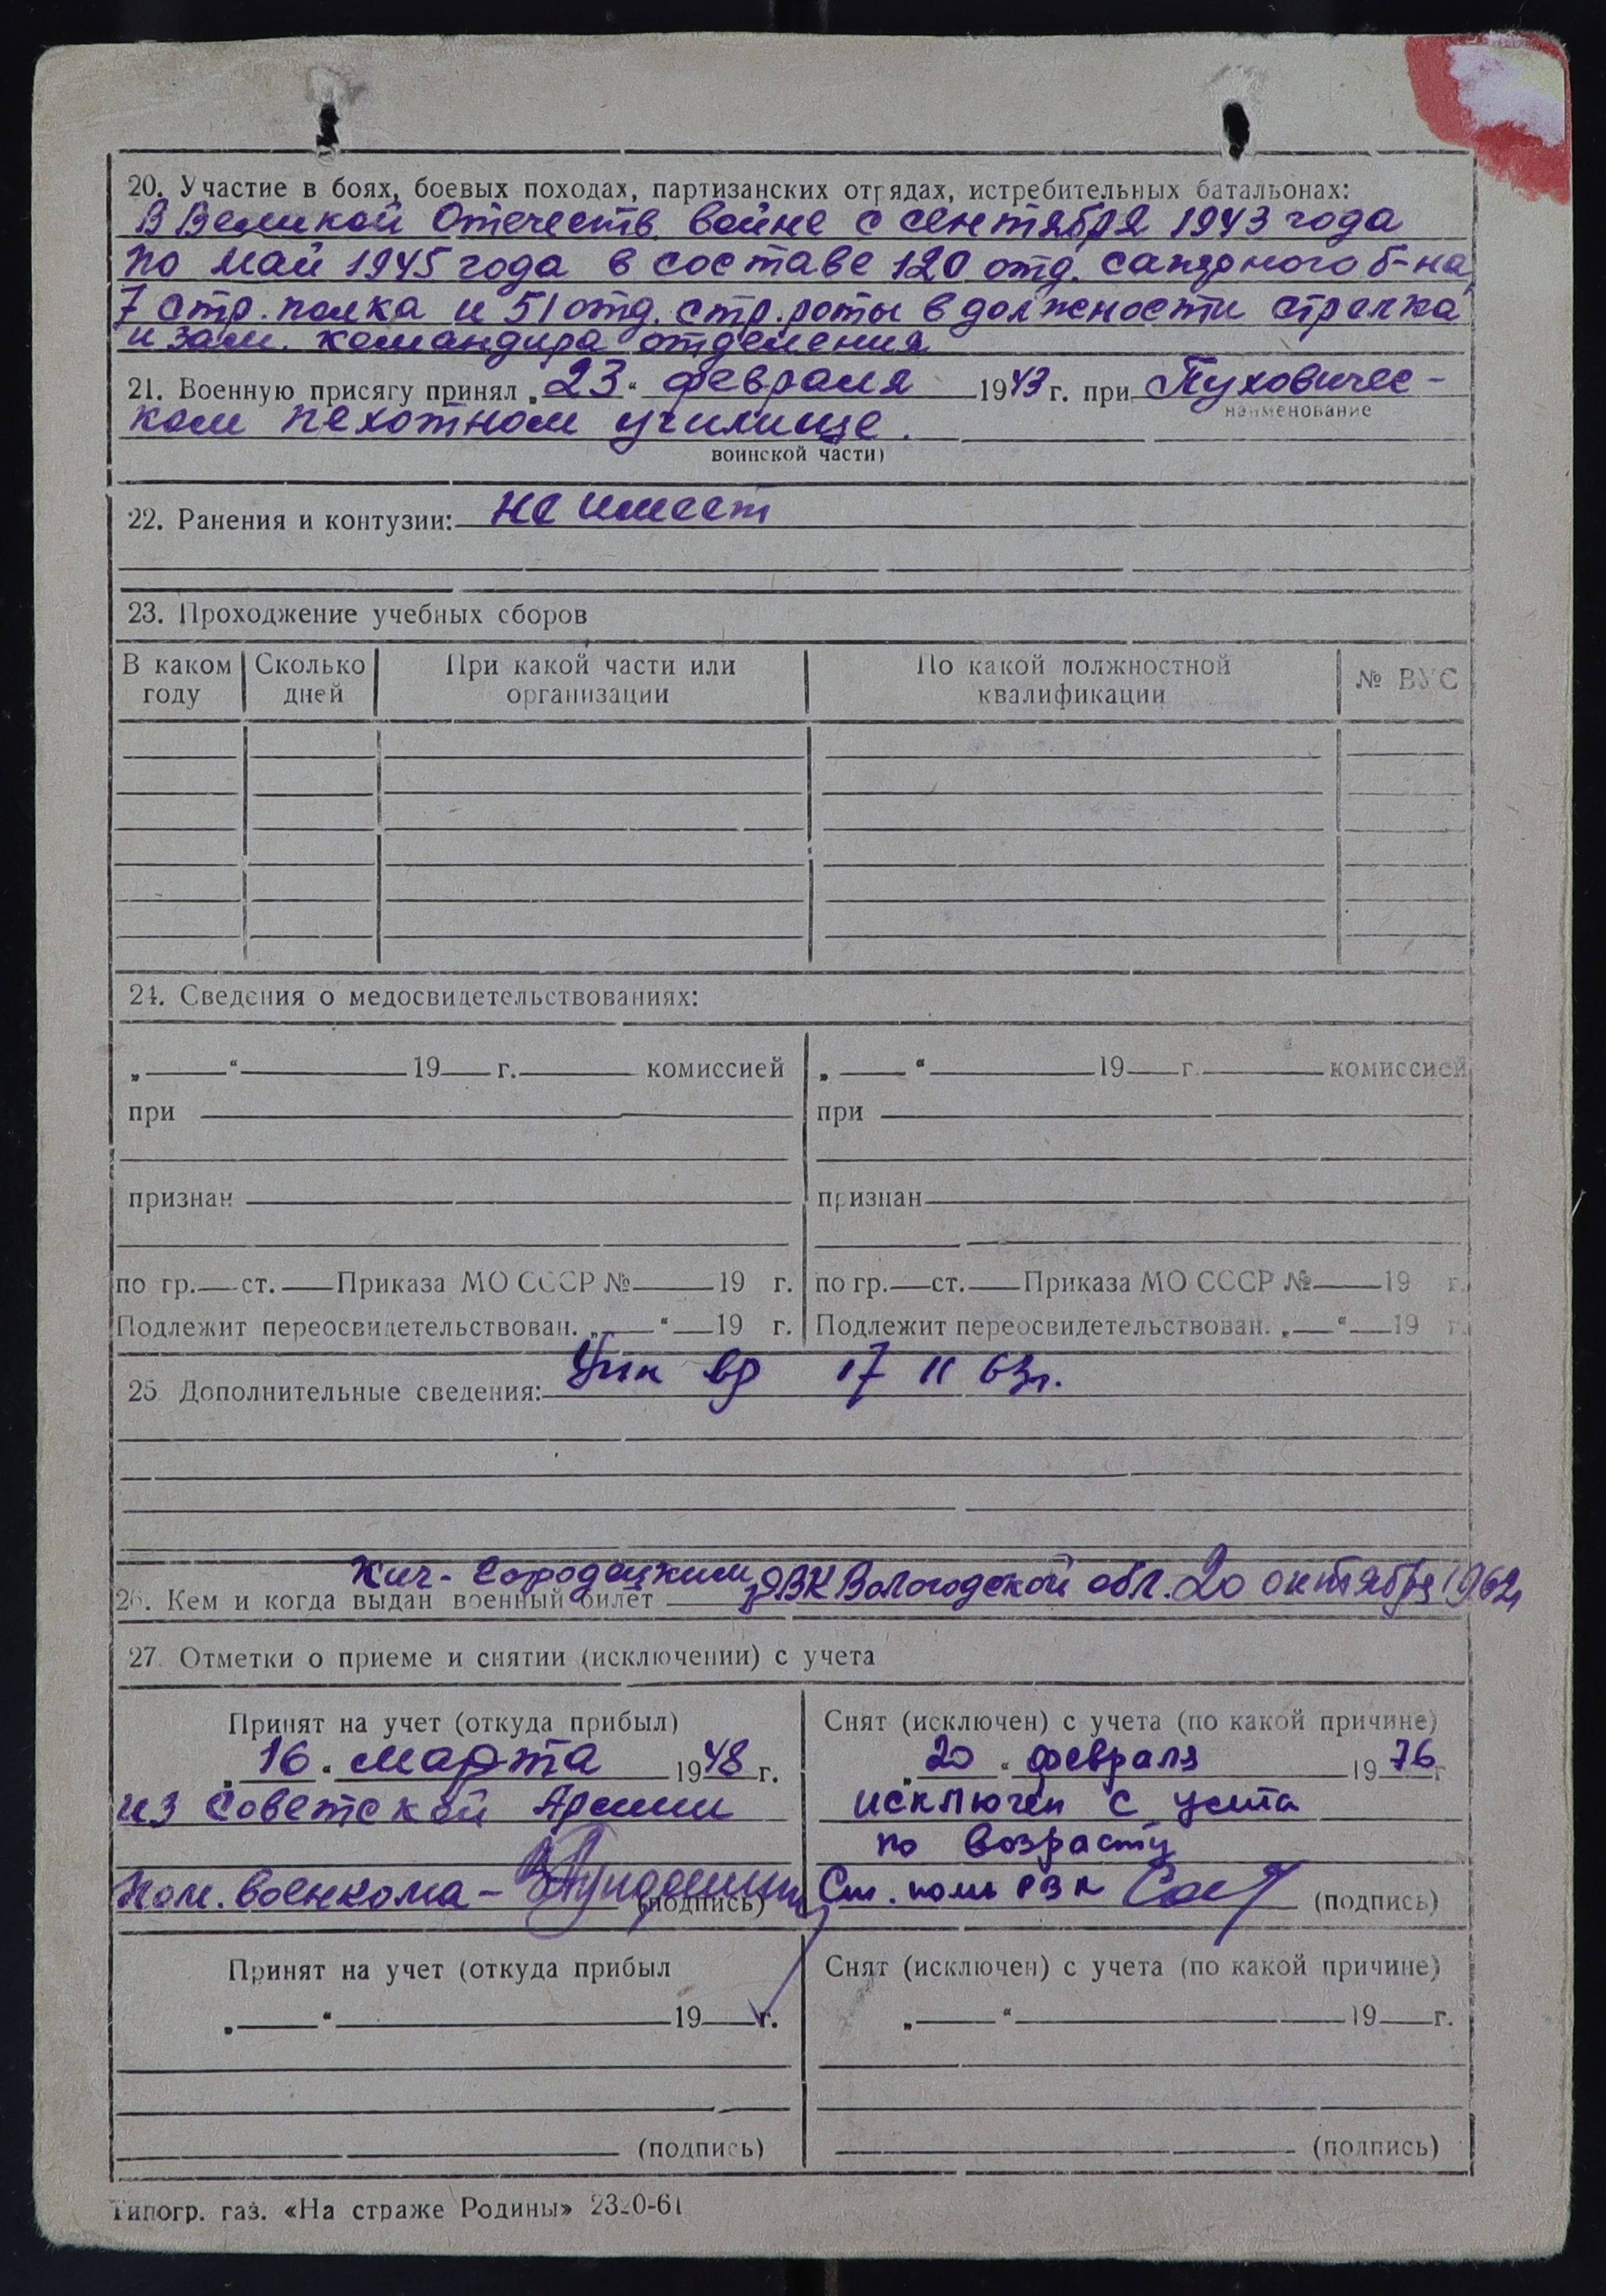 20. Участие в боях, боевых походах, партизанских отрядах, истребительных батальонах:
В Великой Отечеств. войне с сентября 1943 года
по май 1945 года в составе 120 отд. саперного б-на,
7 стр. полка и 51 отд. стр. роты в должности стрелка
и зам. командира отделения
21. Военную присягу принял „23“ февраля 1943 г. при Пуховичес-
наименование
ком пехотном училище.
воинской части)
22. Ранения и контузии: не имеет
23. Прохождение учебных сборов
В каком году Сколько дней При какой части или организации По какой должностной квалификации № ВУС
24. Сведения о медосвидетельствованиях:
„ “ 19 г. комиссией „ “ 19 г. комиссией
при при
признан признан
по гр. ст. Приказа МО СССР № 19 г. по гр. ст. Приказа МО СССР № 19 г.
Подлежит переосвидетельствован. „ “ 19 г. Подлежит переосвидетельствован. „ “ 19 г.
25 Дополнительные сведения: 17 11 63г.
Кич-Городецким
26. Кем и когда выдан военный билет РВК Вологодской обл. 20 октября 1962
27. Отметки о приеме и снятии (исключении) с учета
Принят на учет (откуда прибыл) Снят (исключен) с учета (по какой причине)
„16“ марта 1948 г. „20“ февраля 1976 г
из Советской Армии исключен с учета
по возрасту
Пом. военкома - (подпись) Ст. пом РВК (подпись)
Принят на учет (откуда прибыл Снят (исключен) с учета (по какой причине)
„ “ 19 г. „ “ 19 г.
(подпись) (подпись)
Типогр. газ. «На страже Родины»